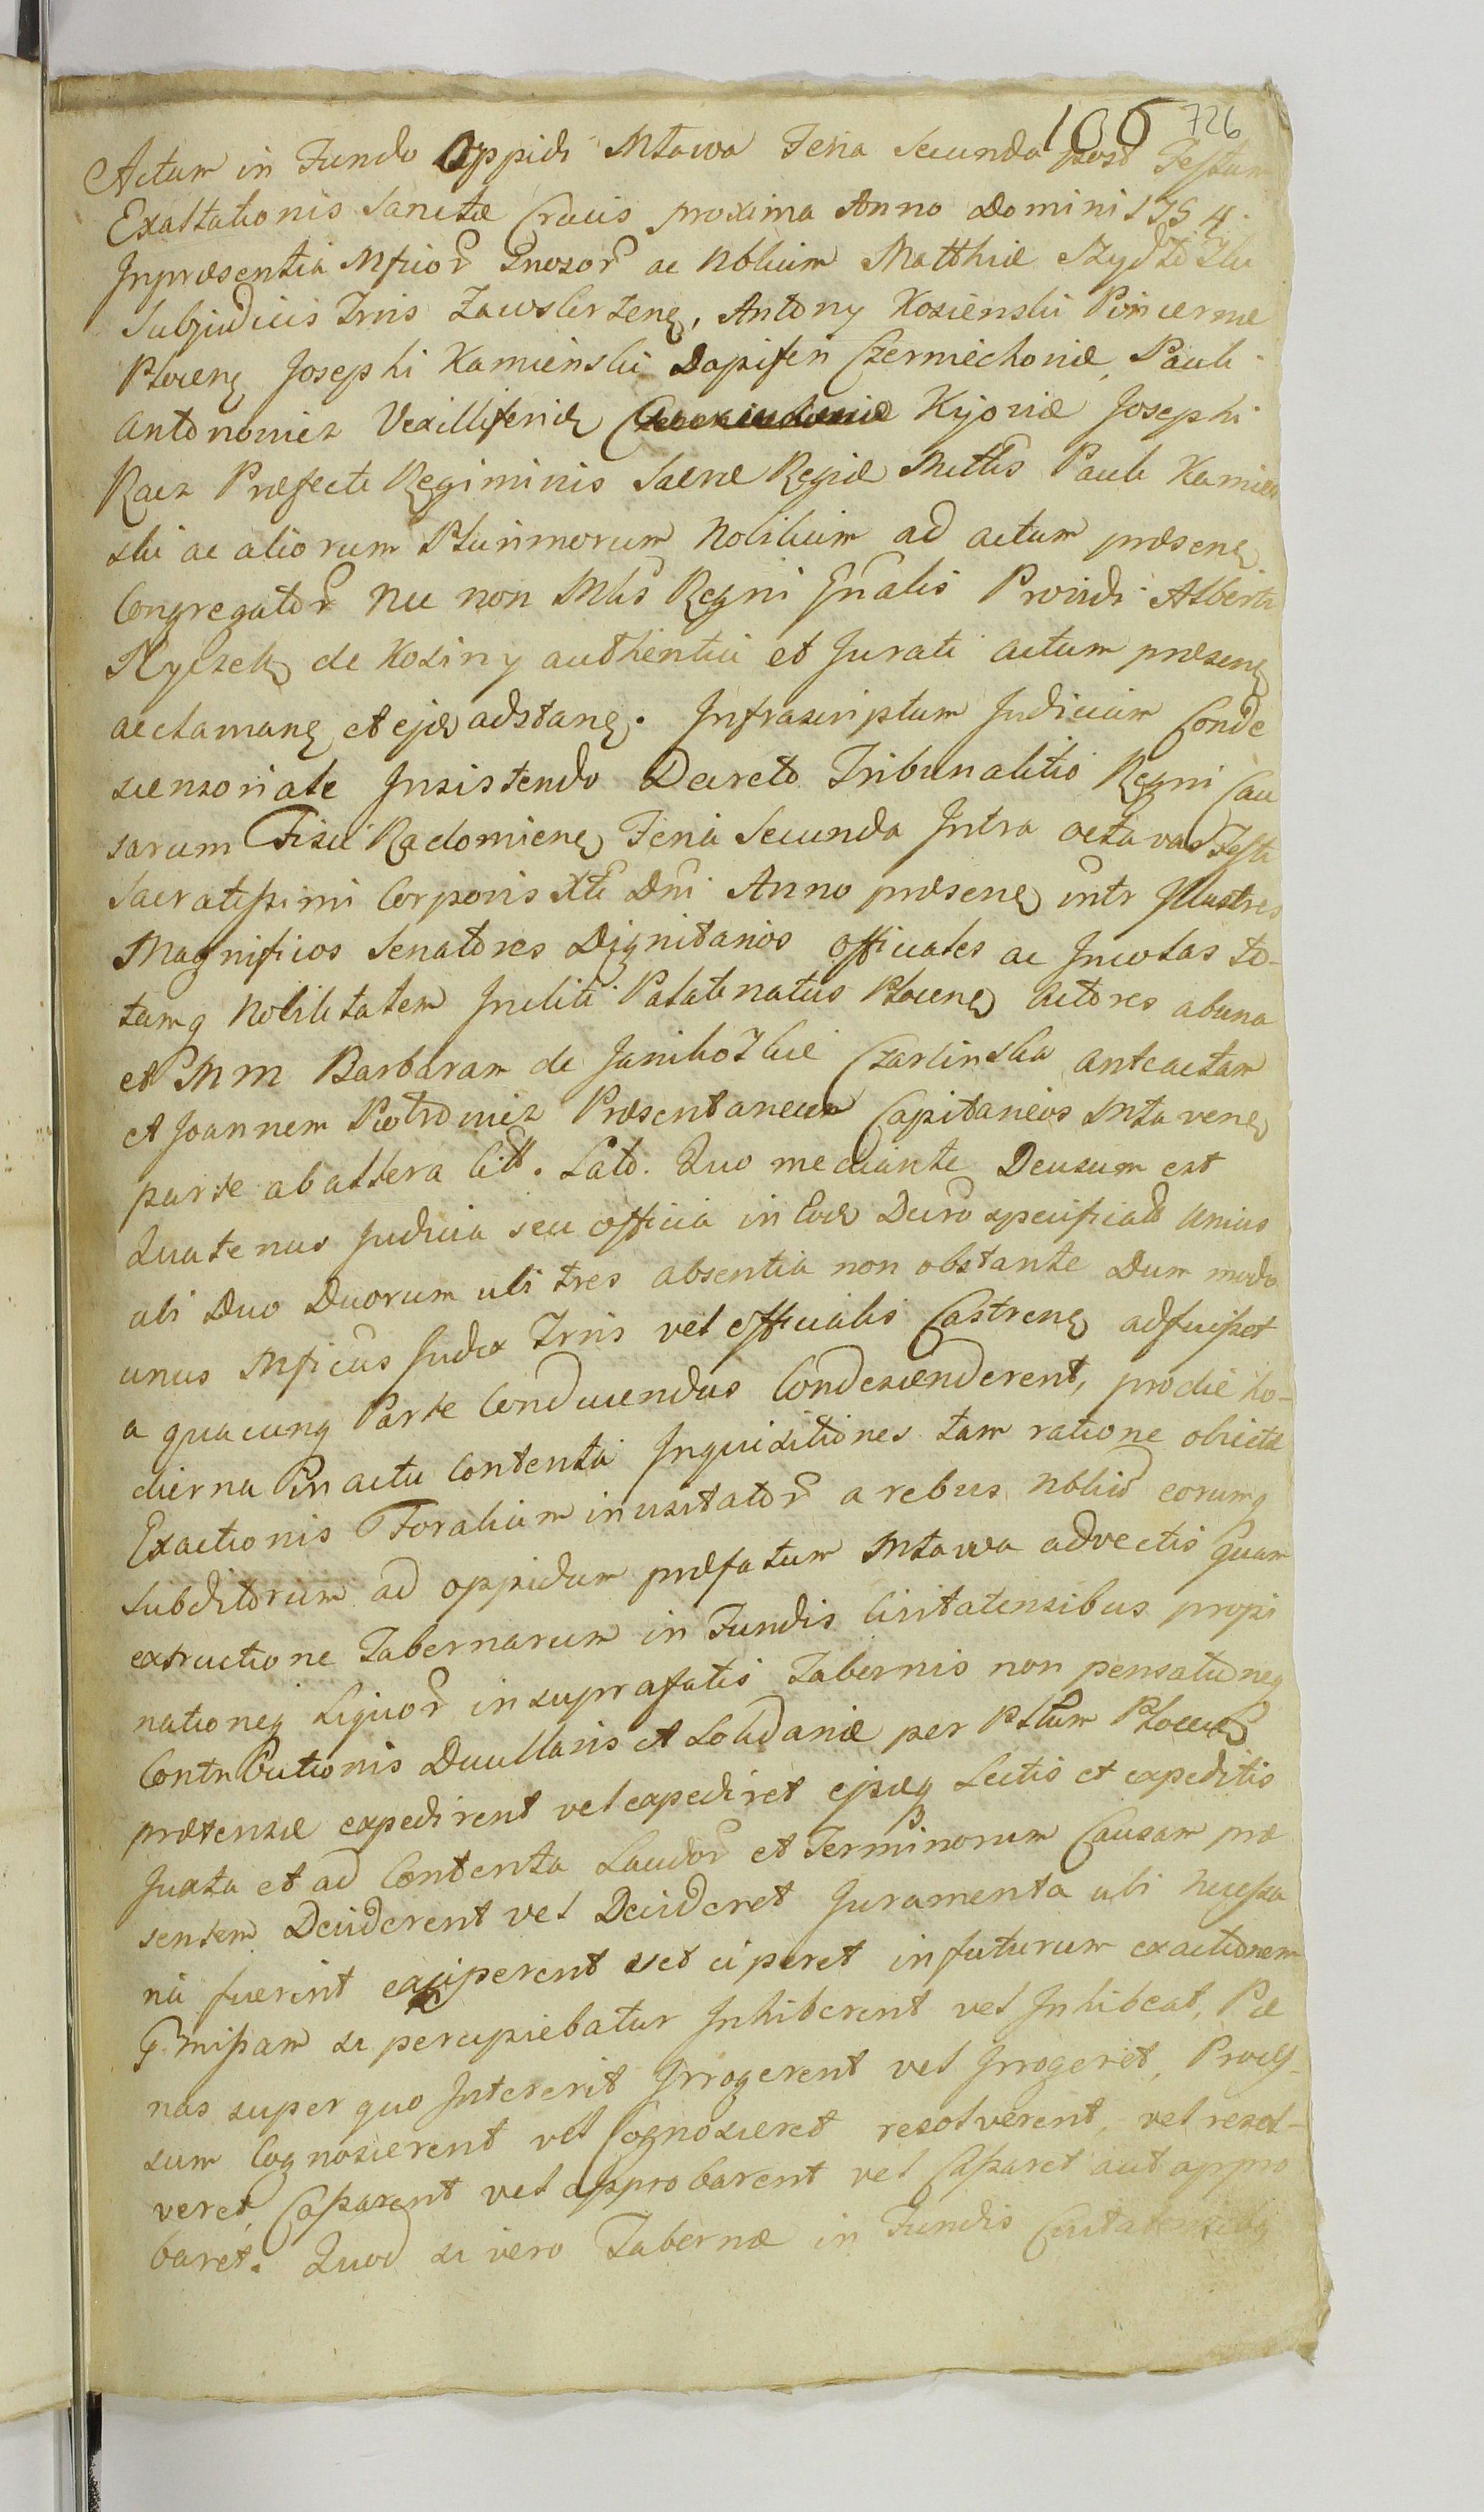 106 726
Actum in Fundo Oppidi Mława Feria Secunda post Festum
Exaltationis Sanctæ Crucis proxima Anno Domini 1754.
Inpræsentia Mficor Gnosor ac Nblium Matthiæ
Subjudicis Trris Zawskrzeng, Antony Kosienski Pincernæ
Płoceng Josephi Kamienski Dapiferi Czerniechoviæ, Pauli
Antonowicz Vexilliferidę Kijoviæ Josephi
Racz Præfecti Regiminis Sacræ Regiæ Mttis Pauli Kamien
ski ac aliorum Plurimorum Nobilium ad actum præseng
Congregator Nec non Mlis Regni Gnalis Providi Alberti
de Kosiny authentici et Jurati actum præseng
acclamang et ejdę adstang. Infrascriptum Judicium Conde
scensoriale Insistendo Decreto Tribunalitio Regni Cau
sarum Fisci Radomieng Feria Secunda Intra octavas Festi
Sacratissimi Corporis Xti Dni Anno præseng intr Illustres
Magnificos Senatores Dignitarios officiales ac Incolas to-
tamq Nobilitatem Incliti Palatinatus Płoceng Actores abuna
et MM Barbaram de Czarlinska anteactam
et Joannem Piotrowicz Præsentaneum Capitaneos Mławeng
parte ab altera Citt. Lato. Quo mediante Decisum est
Quatenus Judicia seu officia in Eodę Decro specificato unius
ubi Duo Duorum ubi tres absentia non obstante Dum modo
unus Mficus Judex Trris vel officialis Castreng adfuisset
a quacunq Parte Conducendus Condescenderent, prodie ho-
dierna in actu Contenta Inquisitiones tam ratione objectæ
Exactionis Foralium inusitator a rebus Nbliu eorumq
Subditorum ad oppidum præfatum Mława advectis Quam
extructione Tabernarum in Fundis Civitatensibus propi
nationeq Liquor in suprafatis Tabernis non pensationeq
Contributionis Duellaris et Solidariæ per Płtum Płoceng
prætensæ expedirent vel expediret ejsdęq Lectis et expeditis
Juxta et ad Contenta Laudor et Terminorum Causam præ
sentem Deciderent vel Decideret Juramenta ubi Necessa
ria fuerint exciperent vel ciperet infuturum exactionem
Pmissam si percipiebatur Inhiberent vel Inhibeat, Pæ
nas super quo Intererit Irrogerent vel Irrogeret, Procęs-
sum Cognoscerent vel Cognosceret resolverent, vel resol-
veret, Cassarent vel approbarent vel Cassaret aut appro
baret. Quod si vero Tabernæ in Fundis Civitatensibq